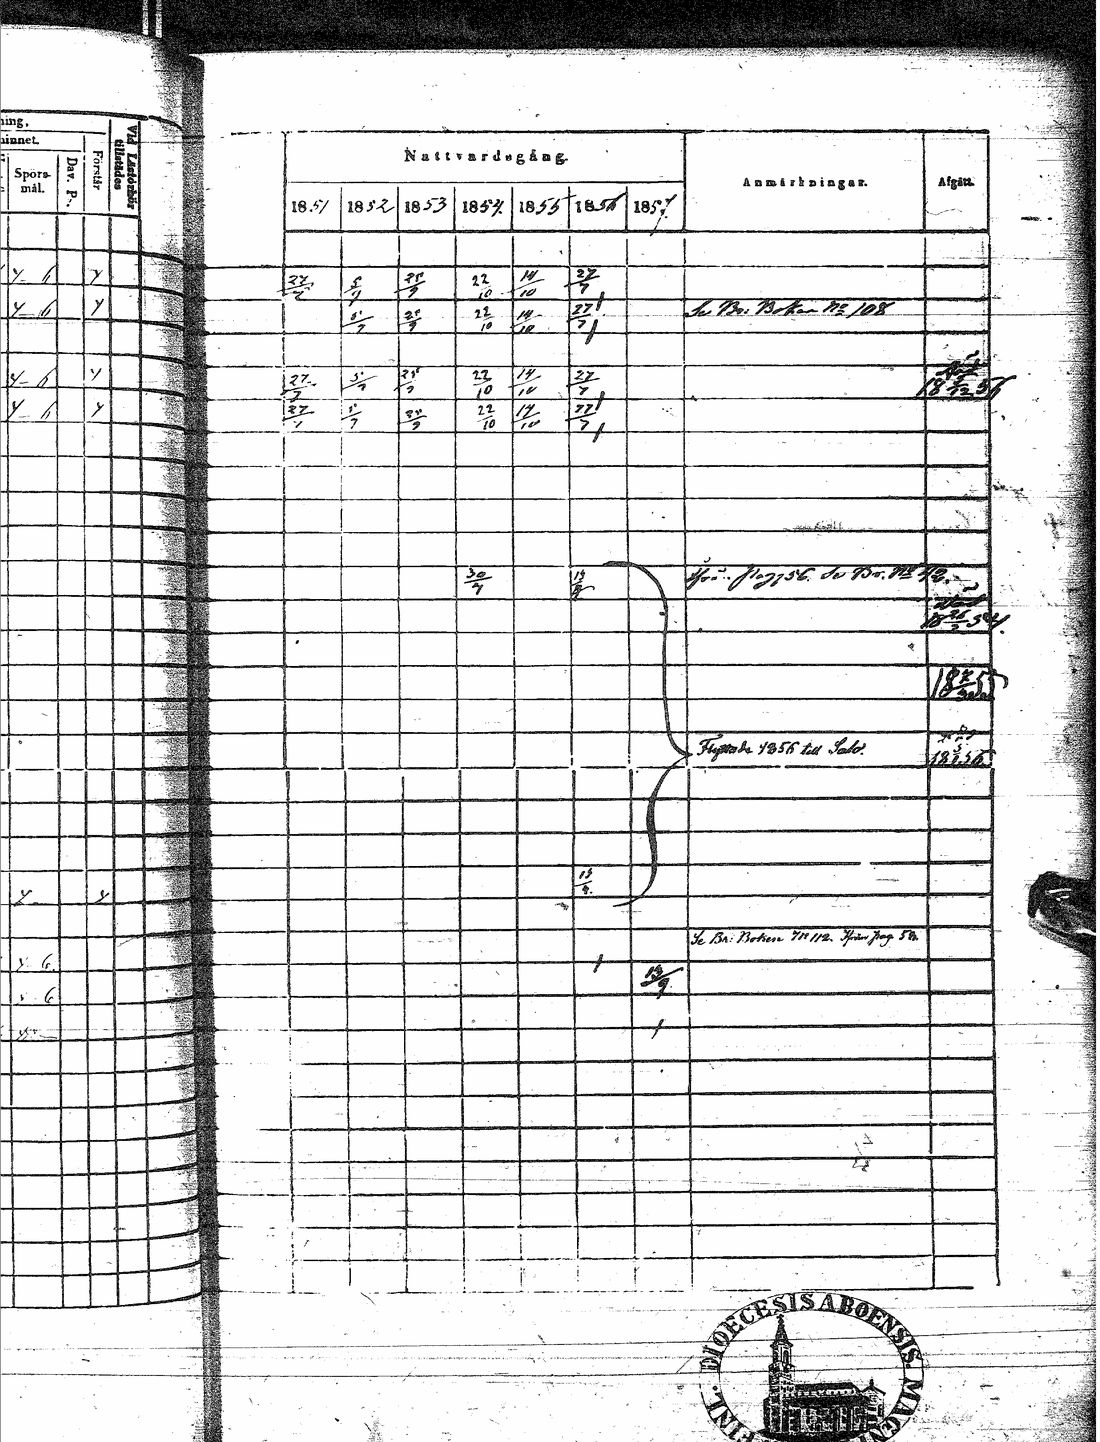 ning,
minnet.
Spörs-
mål.
Dav. P.
Förstår
Vid Läsförhör
tillstädes
Nattvardsgång.
Anmärkningar.
Afgått.
1851 1852 1853 1854. 1855 1856 1857.
y 6 y 27/7 5/7 25/9 22/10 14/10 27/7
y 6 y 5/7 25/9 22/10 14/10 27/7 Se Br: Boken No 108
y 6 y 27/7 5/7 25/9 22/10 14/10 27/7 18 12 56
y 6 y 27/7 5/7 25/9 22/10 14/10 27/7
30/7 Från pag 56. Se Br. No 42.
18 54.
18 55
Flyttade 1856 till Salo.
18 56
y y
Se Br: Boken No 112. Från pag 58.
y 6
6 13/9
DIOECESIS ABOENSIS. MAGNI
FINL.